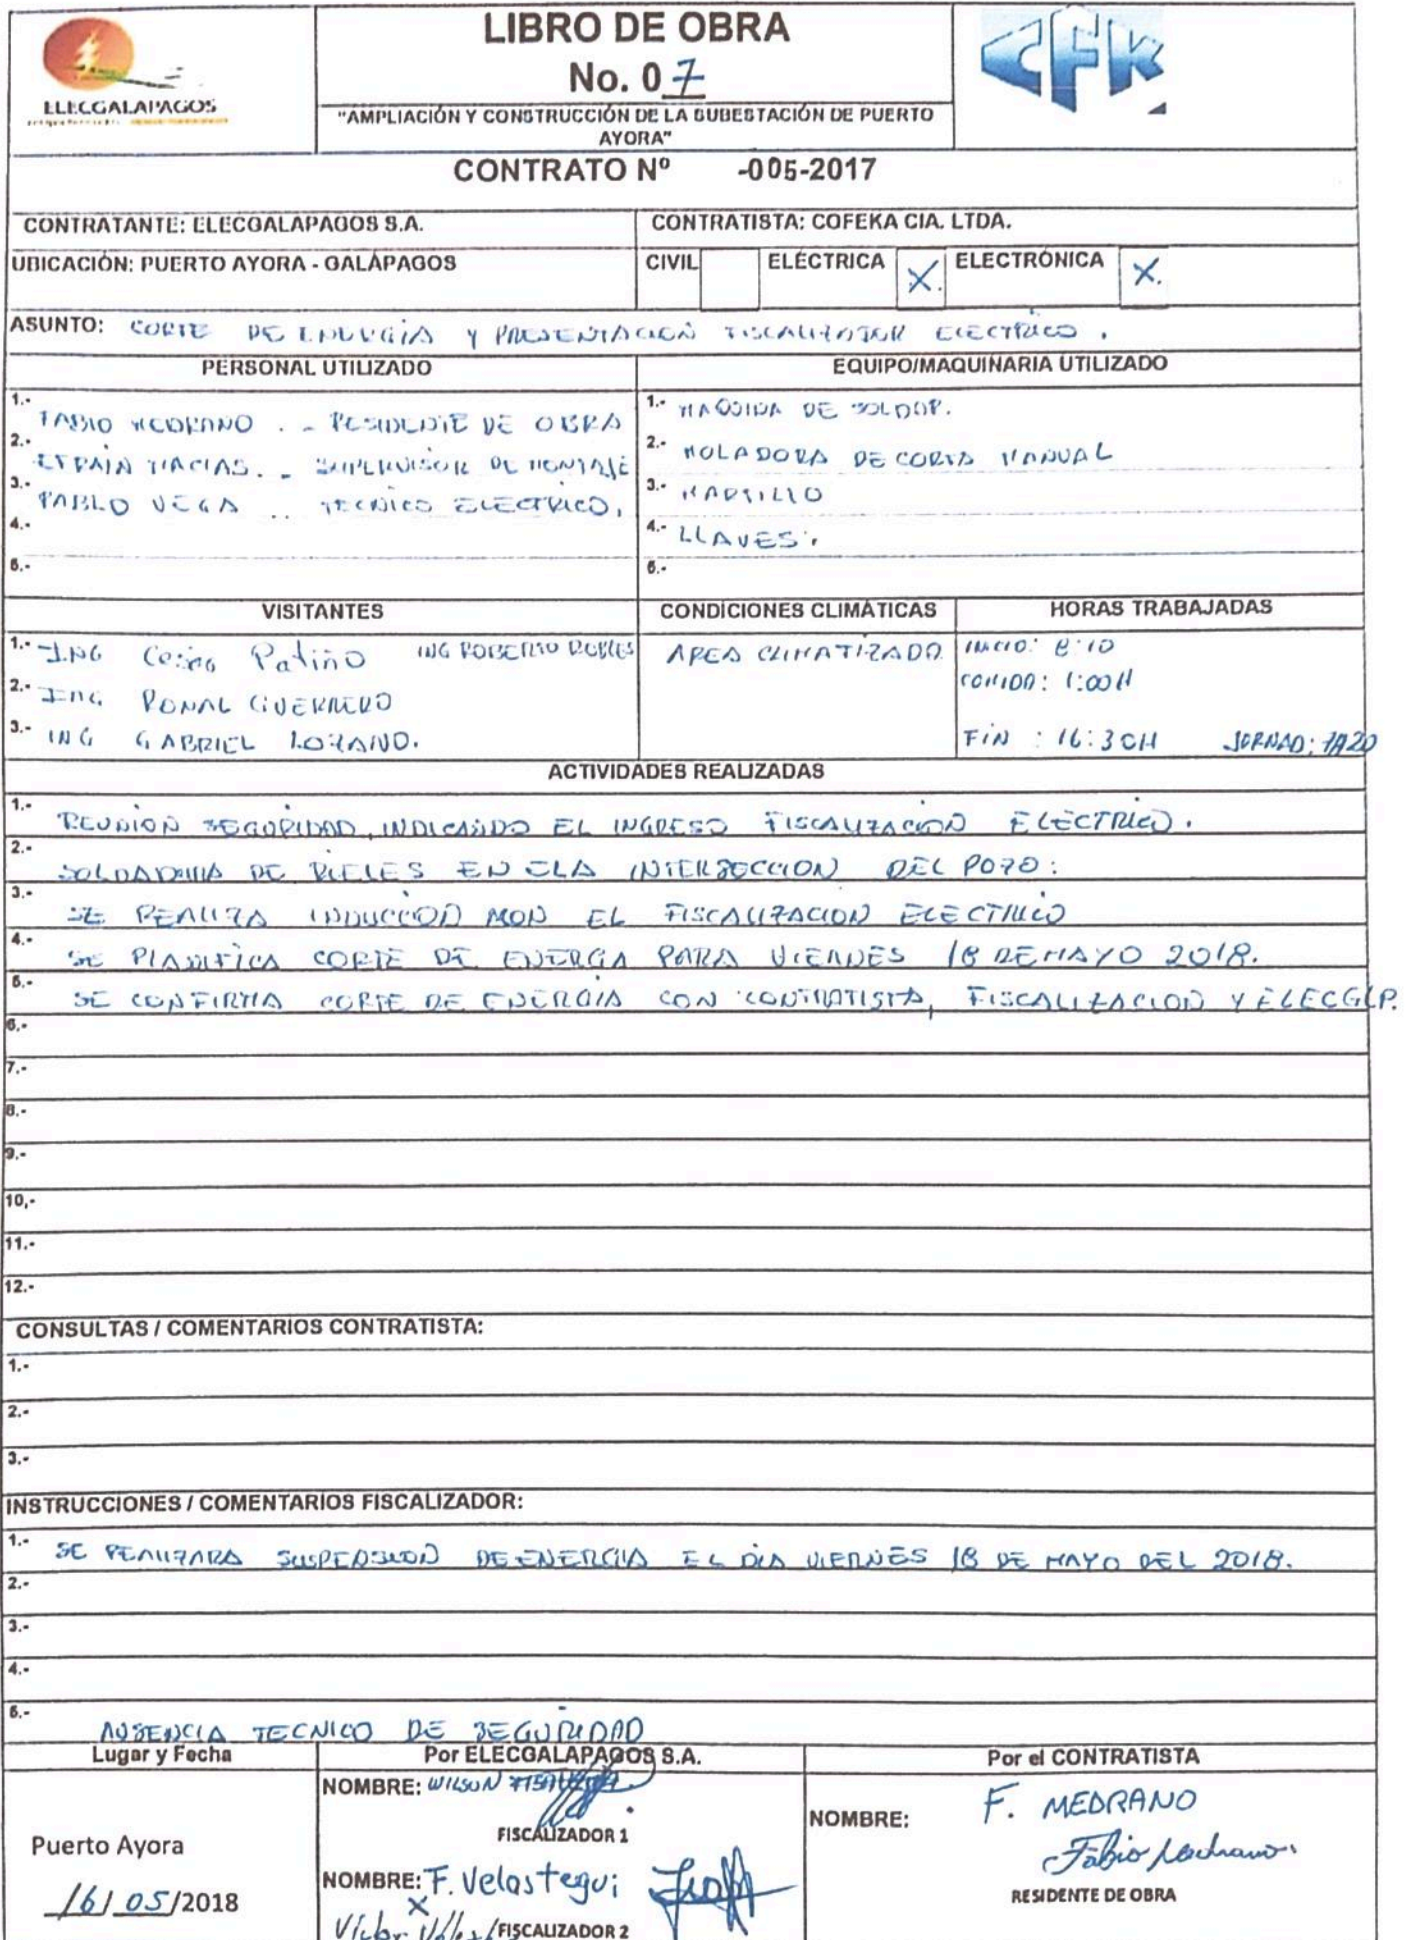 LIBRO DE OBRA
No. 07
"AMPLIACIÓN Y CONSTRUCCIÓN DE LA SUBESTACIÓN DE PUERTO
AYORA"
ELECGALAPAGOS
CFK
CONTRATO Nº -005-2017
CONTRATANTE: ELECGALAPAGOS S.A. CONTRATISTA: COFEKA CIA. LTDA.
UBICACIÓN: PUERTO AYORA - GALÁPAGOS CIVIL ELÉCTRICA X. ELECTRÓNICA X.
ASUNTO: CORTE DE ENERGÍA Y PRESENTACION FISCALIZADOR ELECTRICO.
PERSONAL UTILIZADO EQUIPO/MAQUINARIA UTILIZADO
1.- FABIO MEDRANO . - RESIDENTE DE OBRA
2.- EFRAIN MACIAS. - SUPERVISOR DE MONTAJE
3.- PABLO VEGA .. TECNICO ELECTRICO.
4.-
5.-
1.- MAQUINA DE SOLDAR.
2.- MOLADORA DE CORTA MANUAL
3.- MARTILLO
4.- LLAVES.
5.-
VISITANTES CONDICIONES CLIMÁTICAS HORAS TRABAJADAS
1.- ING Patiño ING ROBERTO ROBLES
2.- ING RONAL GUERRERO
3.- ING GABRIEL LOZANO.
AREA CLIMATIZADA
INICIO: 8:10
COMIDA: 1:00H
FIN : 16:30H JORNAD:
ACTIVIDADES REALIZADAS
1.- REUNION SEGURIDAD, INDICANDO EL INGRESO FISCALIZACION ELECTRICO.
2.- SOLDADURA DE RIELES EN ELA INTERSECCION DEL POZO.
3.- SE REALIZA INDUCCION EL FISCALIZACION ELECTRICO
4.- SE PLANIFICA CORTE DE ENERGIA PARA VIERNES 18 DE MAYO 2018.
5.- SE CONFIRMA CORTE DE ENERGIA CON CONTRATISTA, FISCALIZACION Y ELECGLP.
6.-
7.-
8.-
9.-
10,-
11.-
12.-
CONSULTAS / COMENTARIOS CONTRATISTA:
1.-
2.-
3.-
INSTRUCCIONES / COMENTARIOS FISCALIZADOR:
1.- SE REALIZARA SUSPENSION DE ENERGIA EL DIA VIERNES 18 DE MAYO DEL 2018.
2.-
3.-
4.-
5.- AUSENCIA TECNICO DE SEGURIDAD
Lugar y Fecha Por ELECGALAPAGOS S.A. Por el CONTRATISTA
Puerto Ayora
16/05/2018
NOMBRE: WILSON
FISCALIZADOR 1
NOMBRE: F. Velastegui
X
FISCALIZADOR 2
NOMBRE: F. MEDRANO
Fabio Medrano.
RESIDENTE DE OBRA